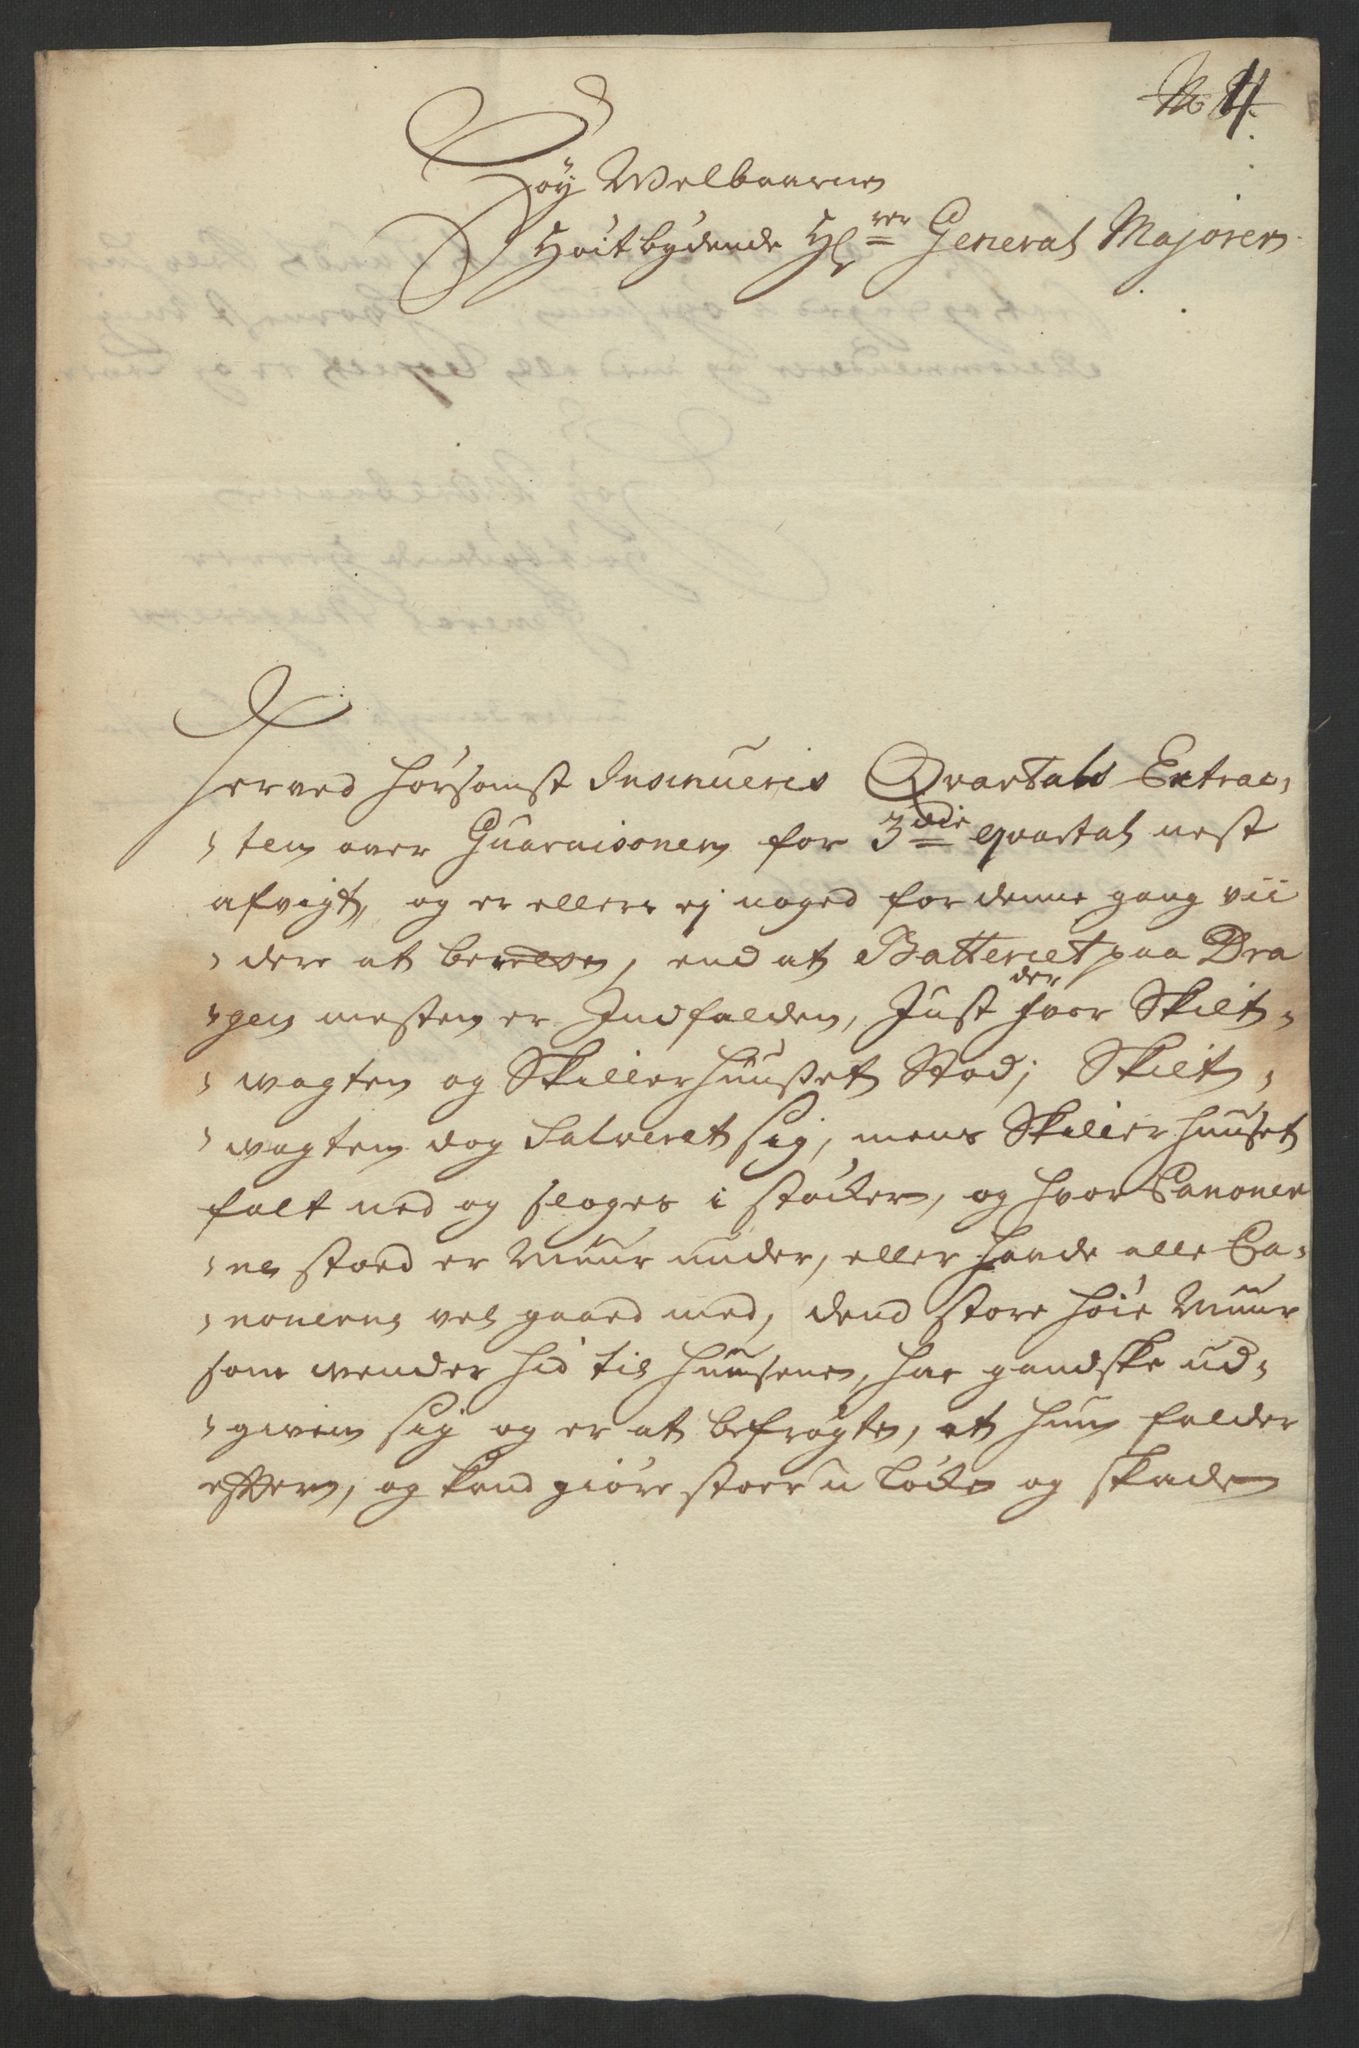 No 4.
Høy Welbaarne
Høitbydende Hr General Majoren
Herved hørsomst Insinueris Qvartals Extrac-
ten over Guarnisonen for 3die qvartal nest
afvigt, og er ellers ej noged for denne gang vii
dere at berette, end at Batteriet paa Dra
gen mesten er Indfalden, Just der hvor Skilt-
wagten og Skillerhuuset Stod; Skilt-
wagten dog Salveret sig, mens Skillerhuuset
falt ned og sloges i støcker, og hvor Canoner
ne stoed er Muur under, ellers hafde alle Ca-
nonerne vel gaaed med, dend store høie Muur
som wender hid til huusene, har gandske ud-
given sig og er at befrøgte, at hun falder
efter, og kand giøre stoer u løcke og skade